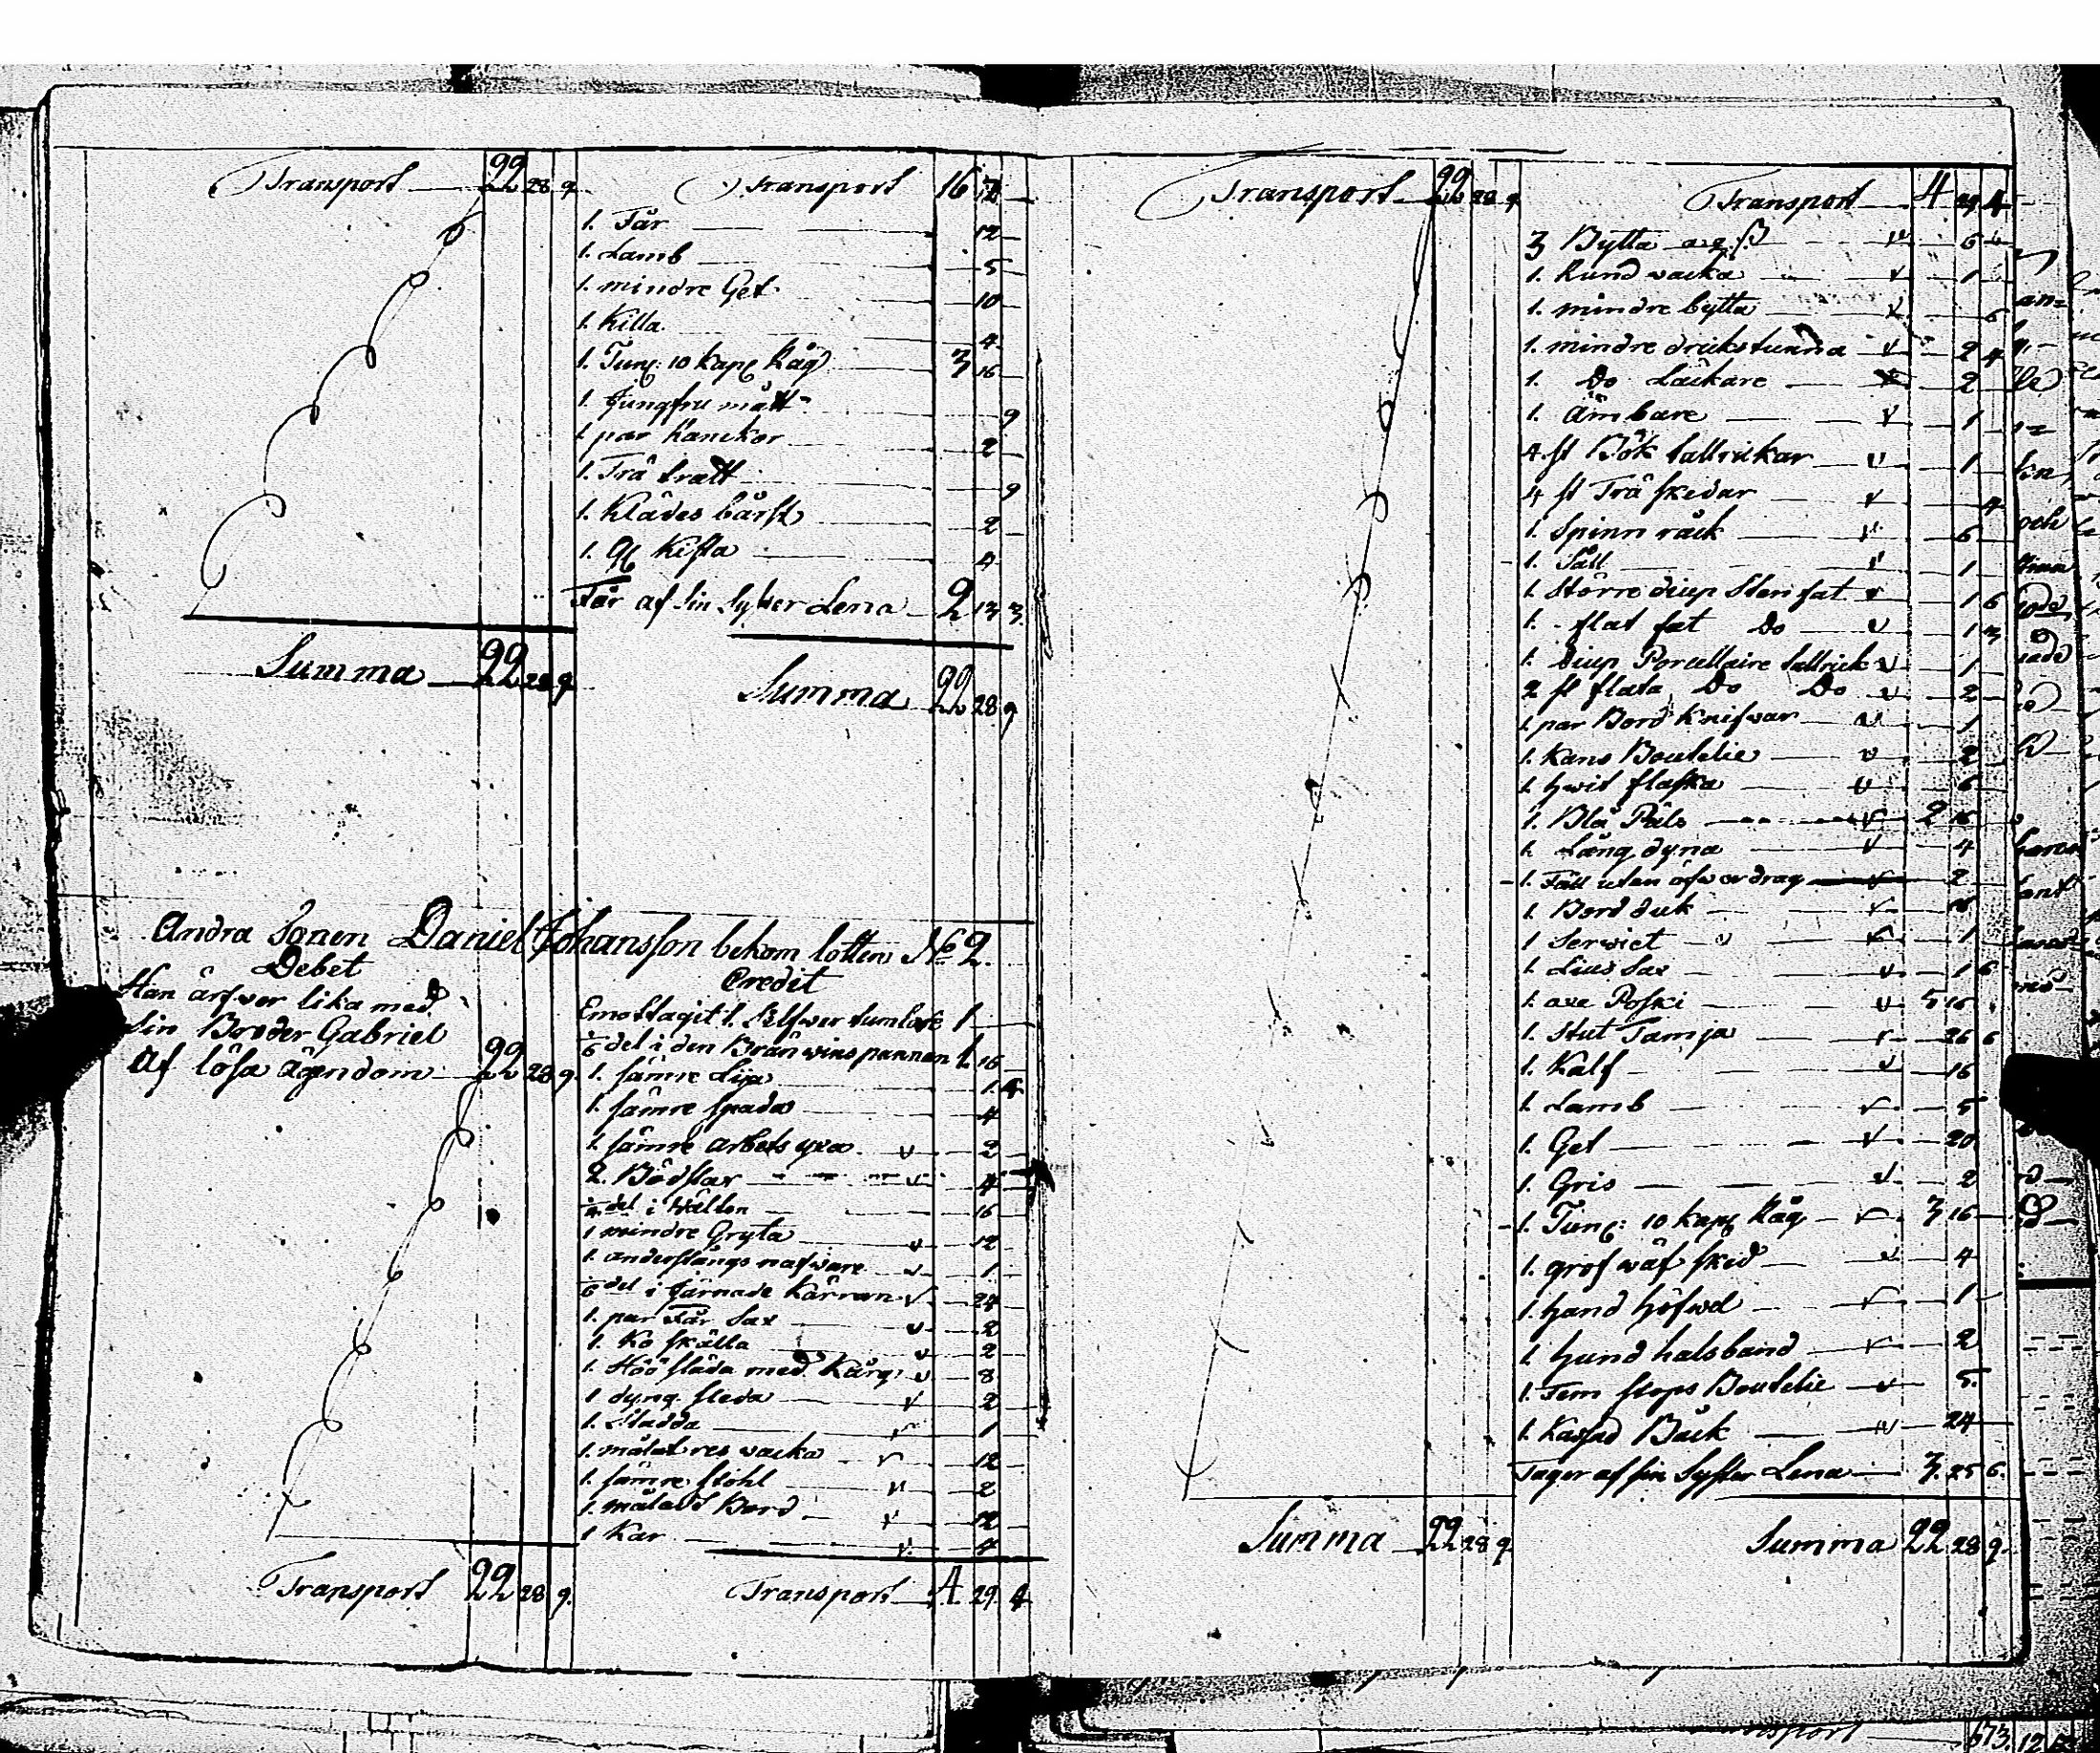 Transport 22 28 9
Summa 22 28 9
Transport 16 12
1. Får 12
1. Lamb 5
1. mindre Get 10
1. Killa 4
1. Tunς: 10 kapς Råg 3 16
1. Jungfru mått 9
1 par Kanekor 2
1. Trä tratt 9
1. Klädes bårst 2
1. Kista 4
Får af Sin Syster Lena 2 13 3
Summa 22 28 9
Andra Sonen Daniel Johansson bekom lotten No 2.
Debet
Han ärfver lika med
Sin Broder Gabriel
Af lösa ägendom 22 28 9
Transport 22 28 9
Credit
Emottagit 1. Silfwer tumlare 1
1/6 del i den Bränwins pannan 1 16
1. sämre Lija 1 4
1. sämre spada 4
1. sämre arbets yxa 2
2. Bödslar 4
del i Wälten 16
1 mindre Gryta 12
1. anderstångs nafware 1
1/6 del i Järnade Kärran 24
1. par Får Sax 2
1. Ko skälla 2
1. Höö släda med Kårg 8
1 dyng sleda 2
1. Sladda 1
1. målat res wacka 12
1. sämre stohl 2
1. måladt Bord 12
1 Kar 4
Transport 4 29 4
Transport 22 28 9
Summa 22 28 9
Transport 4 29 4
3 Bytta a 2 ß 6
1. Rund wacka 1
1. mindre bytta 6
1. mindre drickstunna 2 4
1. Do Läckare 2
1. Ämbare 1
4. st Bök tallrickar 1
4 st Trä skedar 4
1. Spinn råck 6
1. Såll 1
1. Större diup Sten fat 1 6
1. flat fat Do 1 3
1. diup Porcellaine tallrick 1
2 st flata Do Do 2
1. par Bord Knifvar 1
1. Kans Boutelie 2
1. hwit flaska 6
1. Blå Päls 2 16
1. Lång dyna 4
1. Fäll utan öfwerdrag 2
1. Bord duk
1 Serwiet 1
1. Lius Sax 1 6
1. oxe Poski 5 16
1. Stut Tamja 26 6
1. Kalf 16
1. Lamb 5
1. Get 20
1. Gris 2
1. Tunς: 10 kapς Råg 3 16
1. grof wäf sked 4
1. hand höfwel 1
1. hund halsband 2
1. Fem stops Boutelie 5
1. Kasfad Båck 24
Tager af sin Syster Lena 3 25 6
Summa 22 28 9